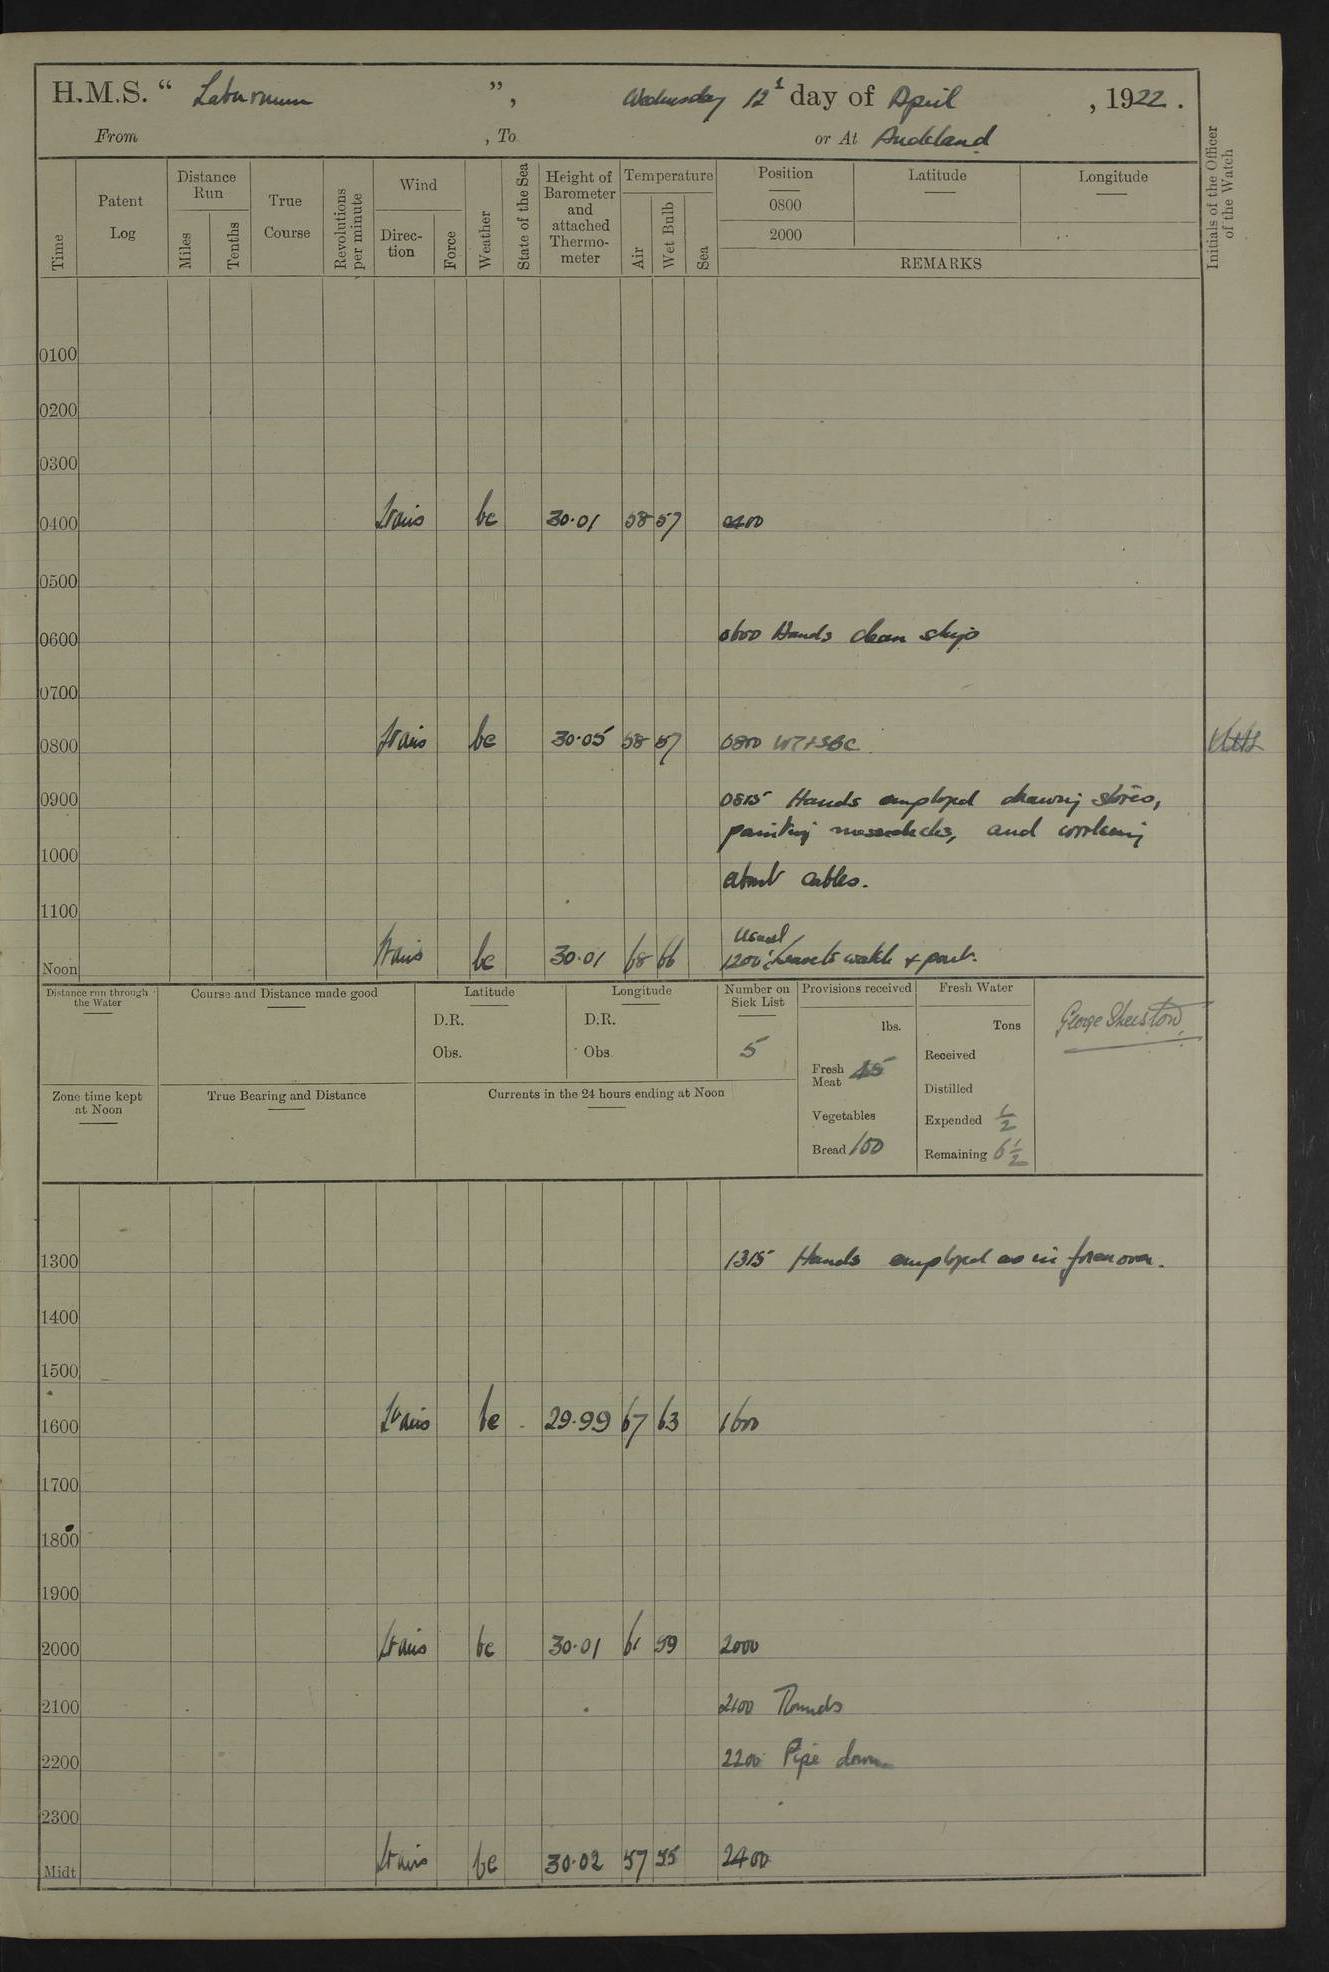 H.M.S. “ Laburnum ”, Wednesday 12th day of April , 1922 .
From , To or At Auckland
Time
Patent Log
Distance Run
Miles
Tenths
True Course
Revolutions per minute
Wind
Direction
Force
Weather
State of the Sea
Height of Barometer and attached Thermometer
Temperature
Air
Wet Bulb
Sea
Position
0800
2000
Latitude
Longitude
REMARKS
Initials of the Officer of the Watch
0100
0200
0300
0400 Lt airs bc 30.01 58 57 0400
0500
0600 0600 Hands clean ship
0700
0800 Lt airs bc 30.05 58 57 0800
0900 0815 Hands employed drawing stores,
painting messdecks, and working
1000
about cables.
1100
usual
Noon Lt airs bc 30.01 68 66 1200 leave to watch & part.
Distance run through the Water
Course and Distance made good
Latitude
D.R.
Obs.
Longitude
D.R.
Obs.
Number on Sick List
5
Provisions received
lbs.
Fresh Meat 45
Vegetables
Bread 100
Fresh Water
Tons
Received
Distilled
Expended ½
Remaining 6½
George Sheiston
Zone time kept at Noon
True Bearing and Distance
Currents in the 24 hours ending at Noon
1300 1315 Hands employed as in forenoon.
1400
1500
1600 Lt airs bc 29.99 67 63 1600
1700
1800
1900
2000 Lt airs bc 30.01 61 59 2000
2100 2100 Rounds
2200 2200 Pipe down
2300
Midt Lt airs bc 30.02 57 55 2400